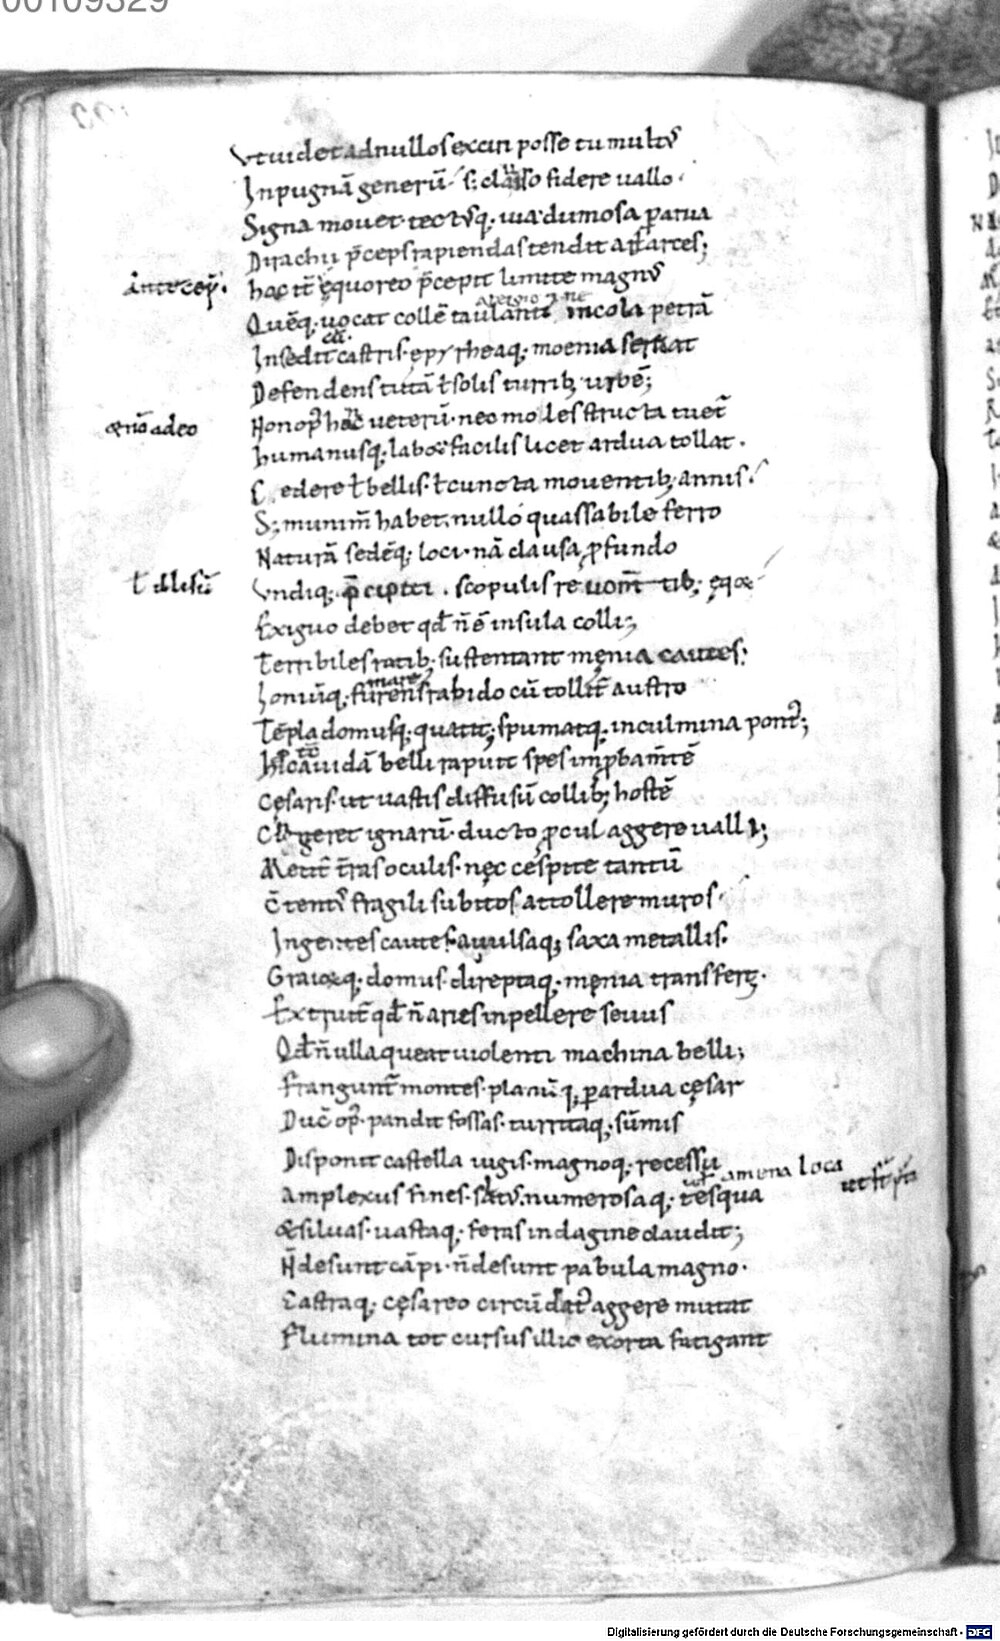 00109329
Vt uidet ad nullos exciri posse tumultꝰ
In pugnā generū· s; clauso fidere uallo·
Signa mouet· tectꝰq; uia dumosa ꝑ arua
Dirachii p̄ceps rapiendas tendit ad arces;
antecep̄·
hoc it̄ ęquoreo p̄cepit limite magnꝰ
Quēq; uocat collē taulantiꝰ incola petrā
Insedit castris· epyrheaq; moenia seruat
Defendens tutā ł solis turrib; urbē;
& n̄o adeo
Non opꝰ hoc ueterū· nec moles structa tuet̄
humanusq; labor facilis licet ardua tollat·
Cedere ł bellis· ł cuncta mouentib; annis·
S; munim̄ habet· nullo quassabile ferro
Naturā sedēq; loci· nā clausa ꝓfundo
ł illisū
Vndiq; p̄cipiti· scopulisq; reuom̄tib; ęqꝛ
Exiguo debet qđ n̄ ē insula colli;
Terribiles ratib; sustentant męnia cautes;
mare
Ioniūq; furens rabido cū tollit̄ austro
Tēpla domusq; quatit; spumatq; in culmina pontꝰ;
Hic auidā belli rapuit spes improba m̄tē
Cęsaris· ut uastis diffusū collib; hostē
Cīgeret ignarū· ducto ꝓcul aggere ualli;
Metit̄ t̄ras oculis· nec cespite tantū
C̄tentꝰ fragili subitos attollere muros·
Ingentes cautes· auulsaq; saxa metallis·
Graioꝝq; domus· direptaq; męnia transfert·
Extruit̄ qđ n̄ aries inpellere seuus
Qđ n̄ ulla queat uiolenti machina belli;
Frangunt̄ montes· planūq; ꝑ ardua cęsar
Ducit opꝰ· pandit fossas· turritaq; sūmis
Disponit castella iugis· magnoq; recessu
amena loca
Amplexus fines· saltꝰ· numerosaq; tesqua
& siluas· uastaq; feras indagine claudit;
N̄ desunt cāpi· n̄ desunt pabula magno·
Castraq; cęsareo circūdatꝰ aggere mutat
Flumina tot cursus illic exorta fatigant
Digitalisierung gefördert durch die Deutsche Forschungsgemeinschaft - DFG